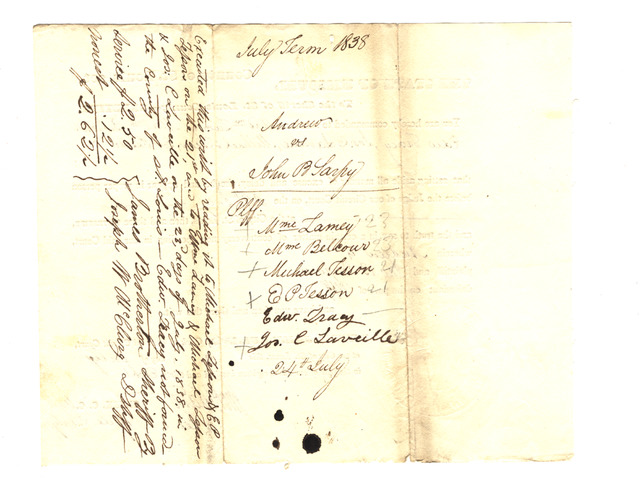 July Term 1838
Andrew
vs
John B Sarpy
Plff.
Mme Lamey 23
+ Mme Belcour
+ Michael Tesson 21
+ E P Tesson 21
Edw. Tracy
+ Jos. C Laveille
24th July
Executed this writ by reading it to Michael Tesson & E P
Tesson on the 21st and to Mme Lamey & Michael Tesson
& Jos. C Laveille on the 23 days of July 1838, in
the County of St Louis — Edw. Tracy not found
Service $2.50 James Brotherton Sheriff By
nonest .12½ Joseph W McClurg D Shff
$2.62½